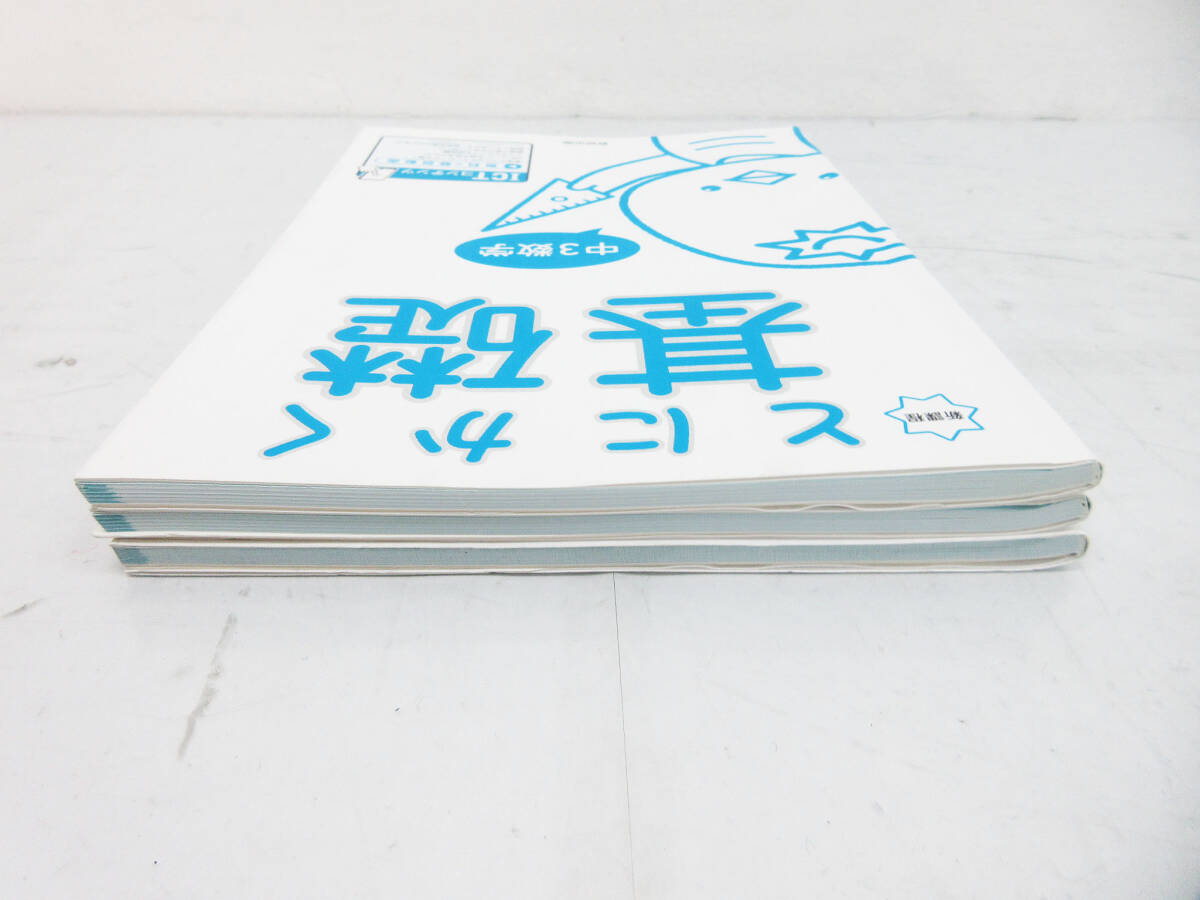 新課程
とにかく
基礎
中3数学
ICTコンテンツ